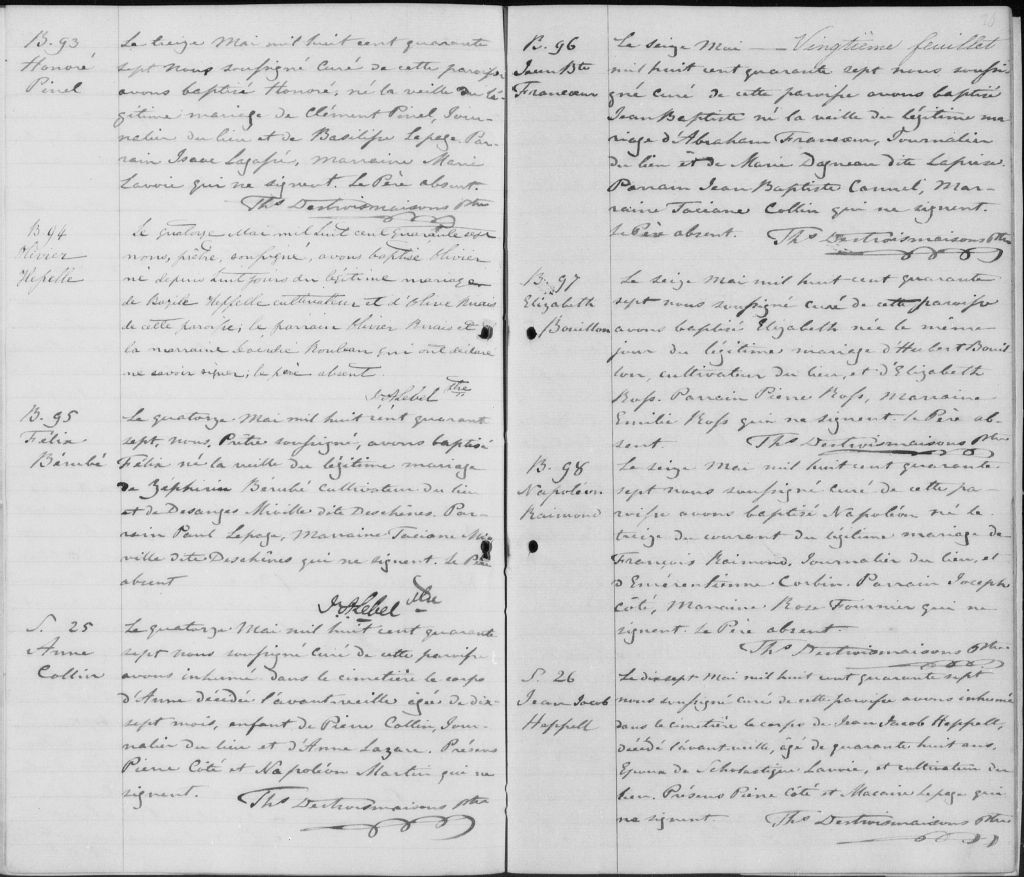 B. 93
Honoré
Pinel
Le treize Mai mil huit cent quarante
sept nous soussigné curé de cette paroisse
avons baptisé Honoré, né la veille du lé-
gitime mariage de Clément Pinel, Jour-
nalier du lieu et de Basilisse Lepage. Par-
rain Isaac Lagassé, marraine Marie
Lavoie qui ne signent. Le Père absent.
Ths Destroismaisons Ptre
B. 94
Olivier
Heppelle
Le quatorze Mai mil huit cent quarante sept
nous, prêtre, soussigné, avons baptisé Olivier
né depuis huit jours du légitime mariage
de Bazile Heppelle cultivateur et d'Olive Ruais
de cette paroisse; le parrain Olivier Ruais et
la marraine Rouleau qui ont déclaré
ne savoir signer; le père absent.
J. A. Lebel Ptre
B. 95
Félix
Bérubé
Le quatorze Mai mil huit cent quarant
sept, nous, Prêtre soussigné, avons baptisé
Félix né la veille du légitime mariage
de Zéphirin Bérubé cultivateur du lieu
et de Desanges Miville dite Deschênes. Par-
rain Paul Lepage, Marraine Taciane Mi-
ville dite Deschênes qui ne signent. Le Père
absent
J. A. Lebel Ptre
S. 25
Anne
Collin
Le quatorze Mai mil huit cent quarante
sept nous soussigné curé de cette paroisse
avons inhumé dans le cimetière le corps
d'Anne décédé l'avant veille âgée de dix
sept mois, enfant de Pierre Collin, Jour-
nalier du lieu et d'Anne Lazare. Présens
Pierre Côté et Napoléon Martin qui ne
signent.
Ths Destroismaisons Ptre
20
B. 96
Jean Bte
Francoeur
Le seize Mai — Vingtième feuillet
mil huit cent quarante sept nous soussi-
gné curé de cette paroisse avons baptisé
Jean Baptiste né la veille du légitime ma
riage d'Abraham Francoeur, Journalier
du lieu et de Marie Dagneau dite Laprise.
Parrain Jean Baptiste Cannel, Mar-
raine Taciane Collin qui ne signent.
Le Père absent.
Ths Destroismaisons Ptre
B. 97
Elizabeth
Bouillon
Le seize Mai mil huit cent quarante
sept nous soussigné curé de cette paroisse
avons baptisé Elizabeth née le même
jour du légitime mariage d'Hubert Bouil
lon, cultivateur du lieu, et d'Elizabeth
Ross. Parrain Pierre Ross, Marraine
Emilie Ross qui ne signent. Le Père ab-
sent
Ths Destroismaisons Ptre
B. 98
Napoléon
Raimond
Le seize Mai mil huit cent quarante-
sept nous soussigné curé de cette pa-
roisse avons baptisé Napoléon né le
treize du courant du légitime mariage de
François Raimond, Journalier du lieu, et
d'Emérentienne Corbin. Parrain Joseph
Côté, Marraine Rose Fournier qui ne
signent. Le Père absent.
Ths Destroismaisons Ptre
S. 26
Jean Jacob
Heppell
Le dix sept Mai mil huit cent quarante sept
nous soussigné curé de cette paroisse avons inhumé
dans le cimetière le corps de Jean Jacob Heppell,
décédé l'avant veille, âgé de quarante huit ans,
Epoux de Scholastique Lavoie, et cultivateur du
lieu. Présens Pierre Côté et Macaire Lepage qui
ne signent.
Ths Destroismaisons Ptre